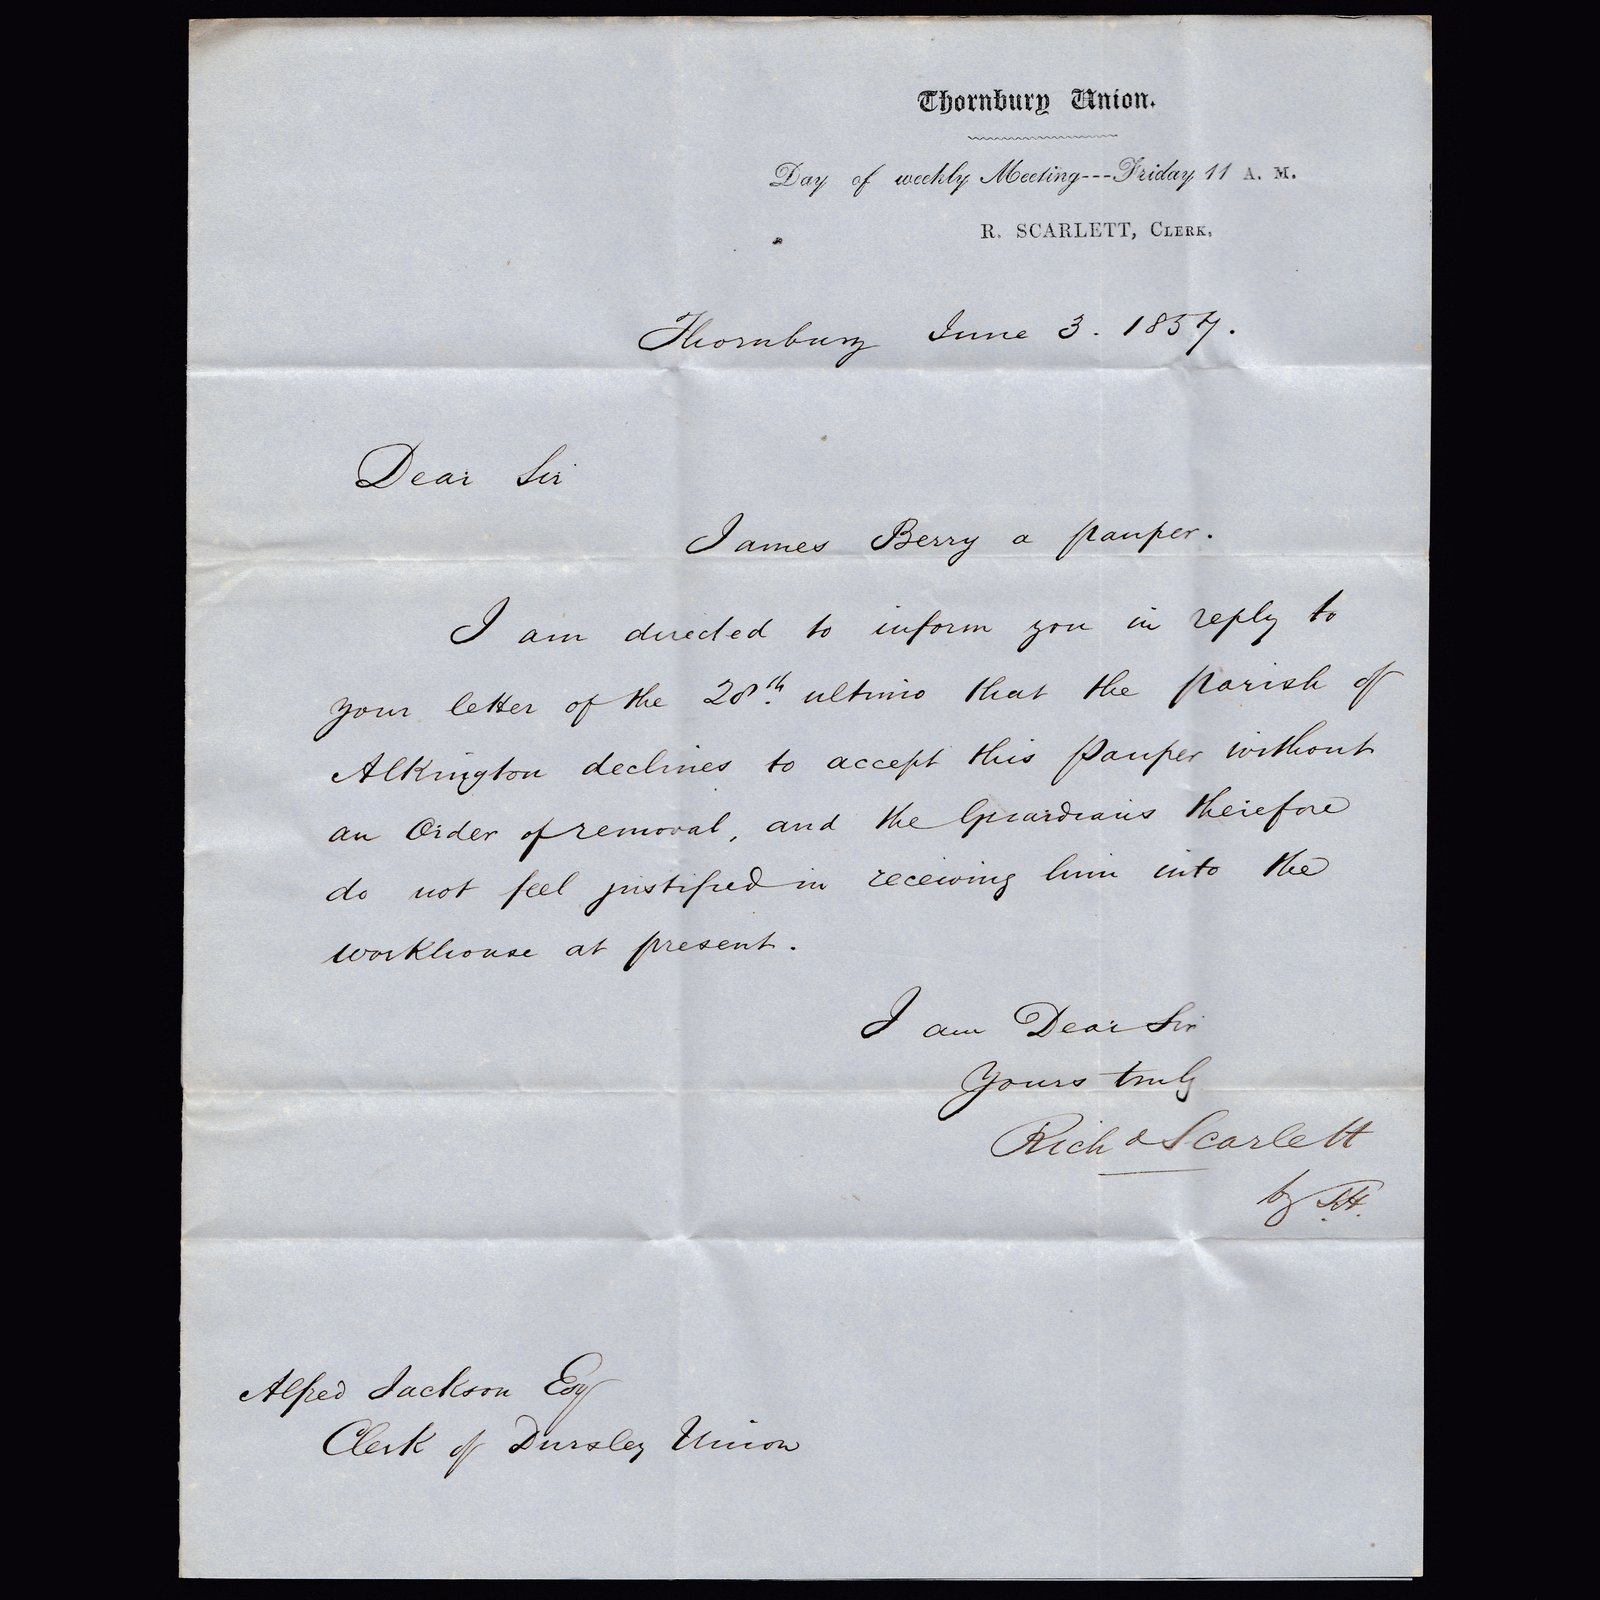 Thornbury Union.
Day of weekly Meeting---Friday 11 A. M.
R. SCARLETT, CLERK.
Thornbury June 3. 1857.
Dear Sir
James Berry a pauper.
I am directed to inform you in reply to
your letter of the 28th. ultimo that the parish of
Alkington declines to accept this Pauper without
an Order of removal, and the Guardians therefore
do not feel justified in receiving him into the
workhouse at present.
I am Dear Sir
Yours truly
Richd Scarlett
by
Alfred Jackson Esq
Clerk of Dursley Union